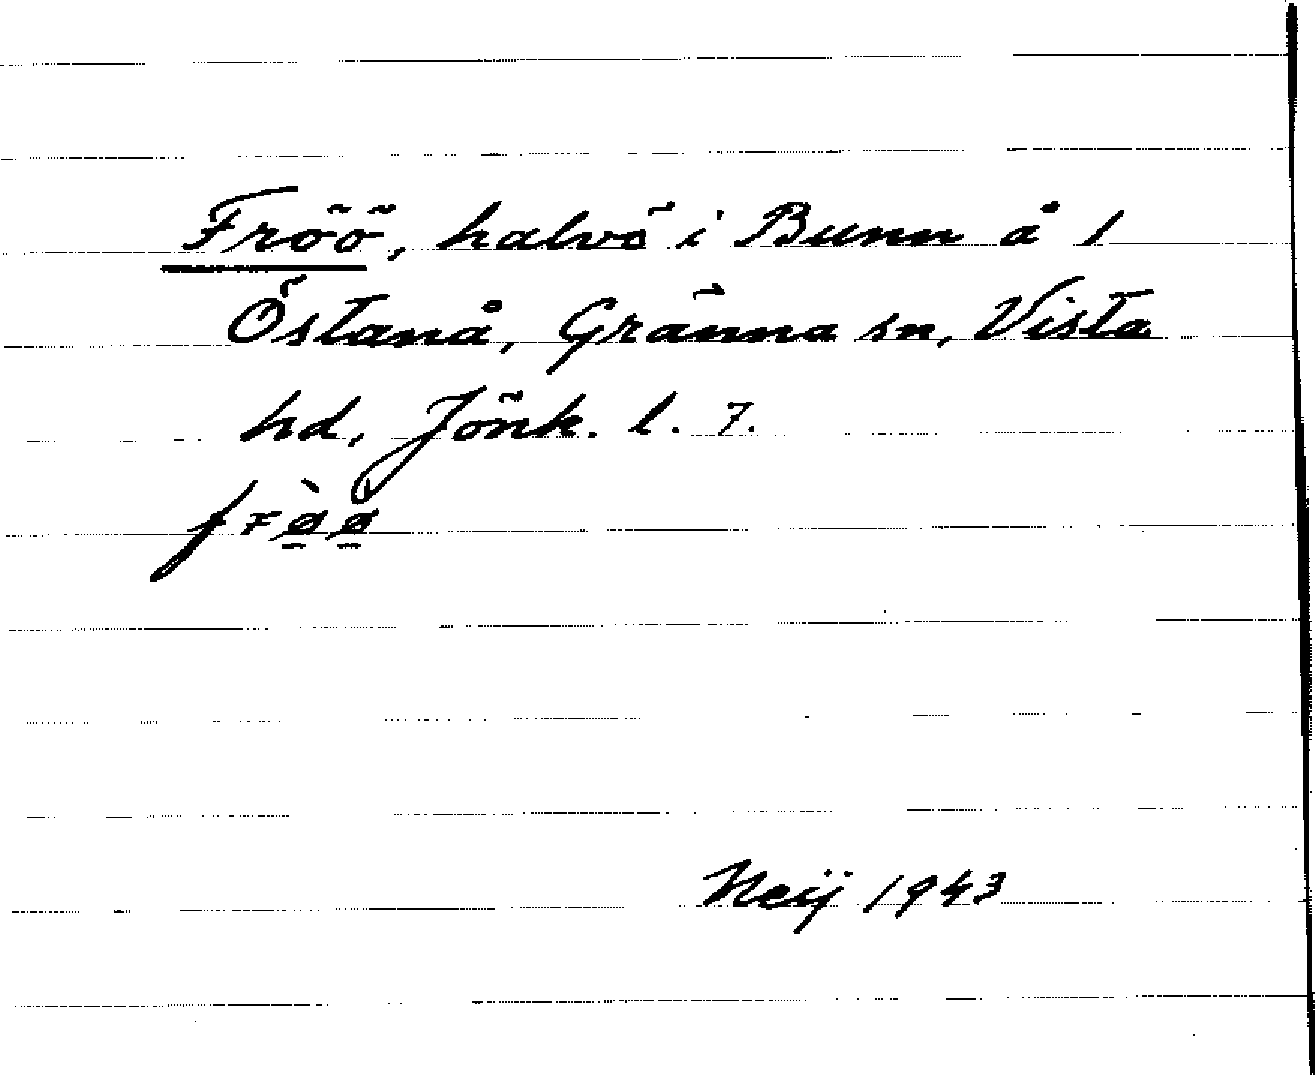 Fröö, halvö i Bunn å 1
Östanå, Gränna sn, Vista
hd, Jönk. l. 7.
frø̠̀ø̠
Neij 1943